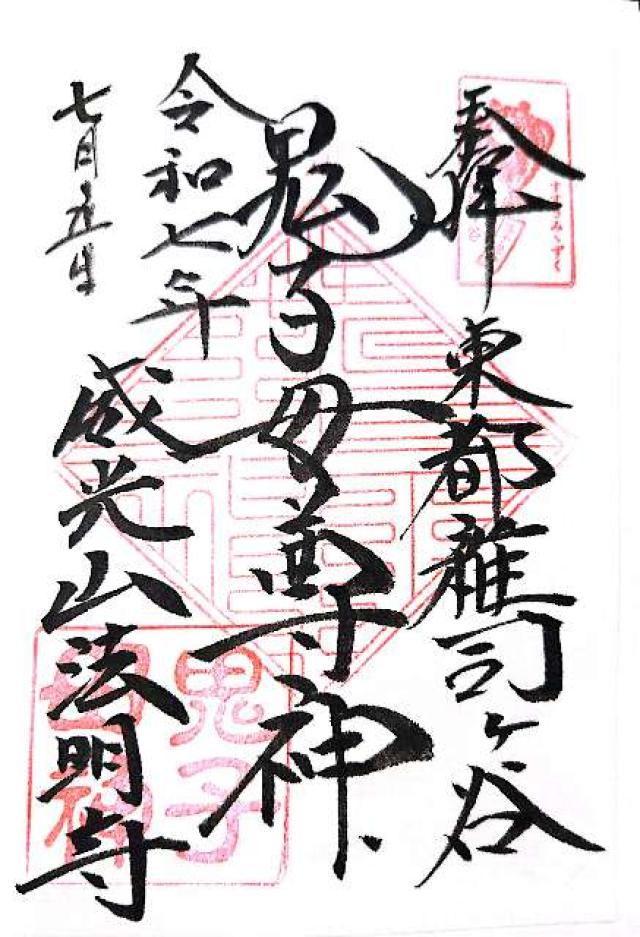 奉拝
東都雑司ヶ谷
鬼子母尊神
令和七年
七月五日
威光山法明寺
すすきみゝずく
鬼子
母神